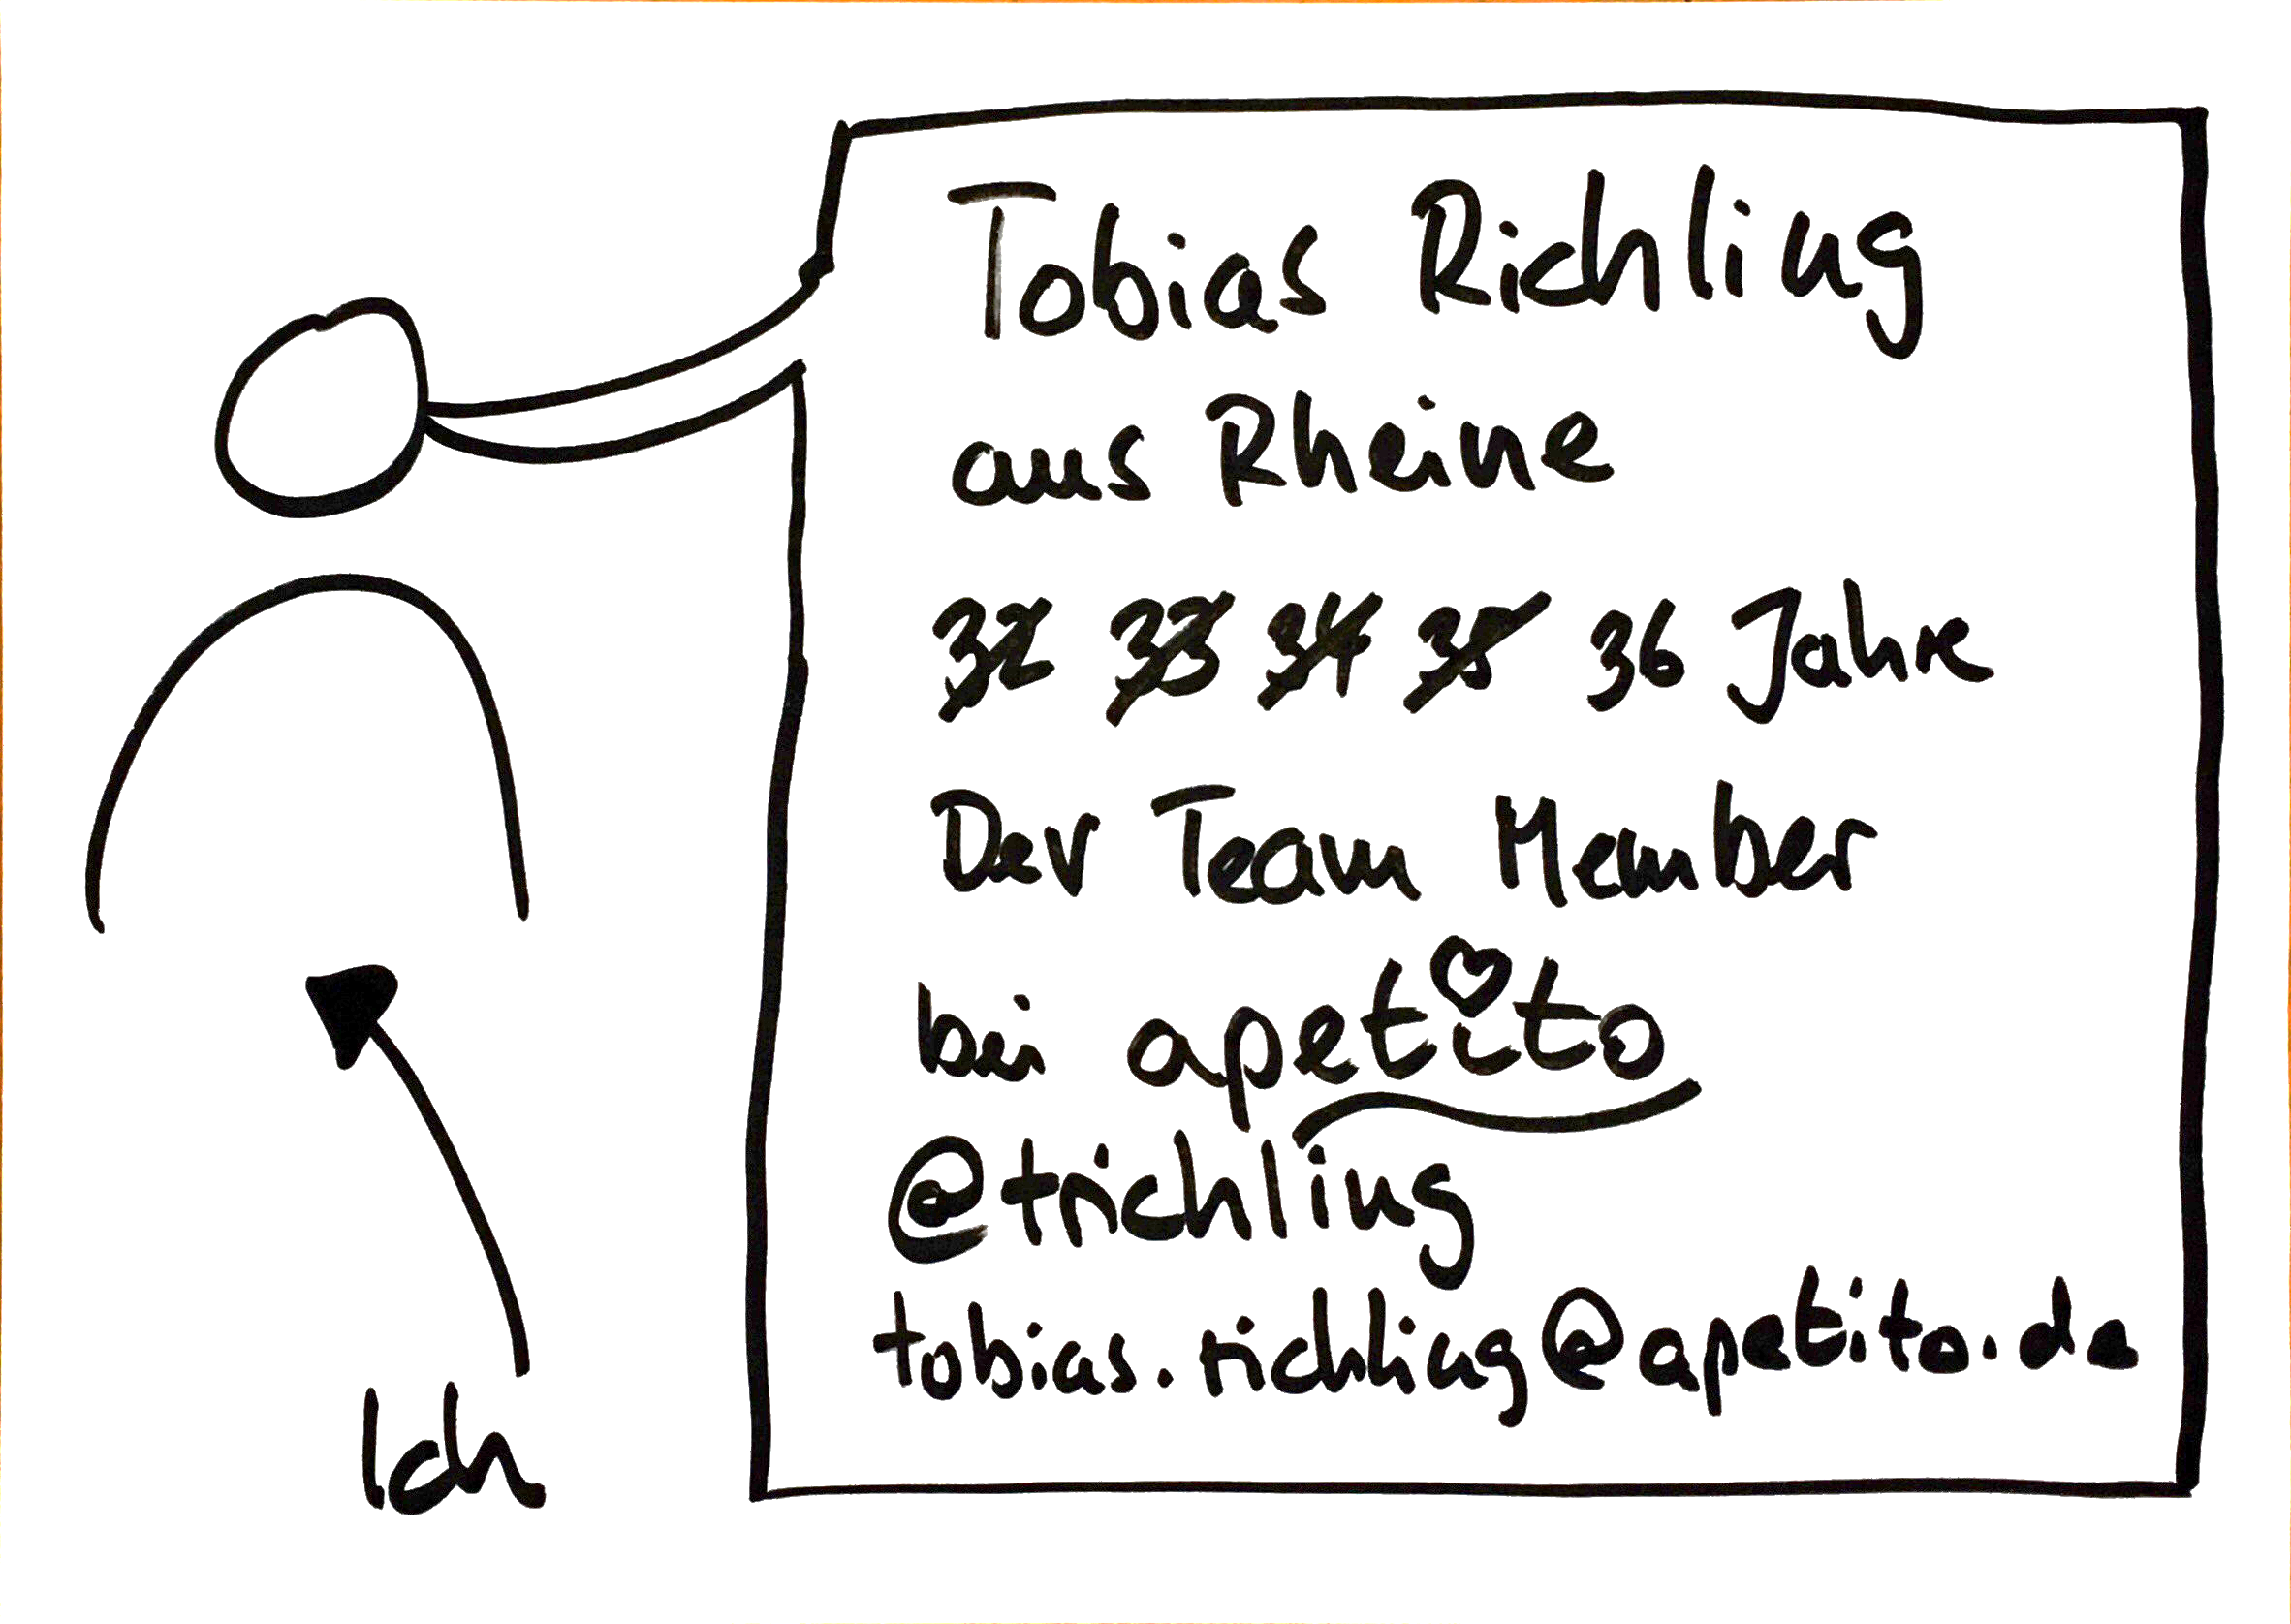 Tobias Richling
aus Rheine
32 33 34 35 36 Jahre
Dev Team Member
bei apetito
@trichling
tobias.richling@apetito.de
Ich